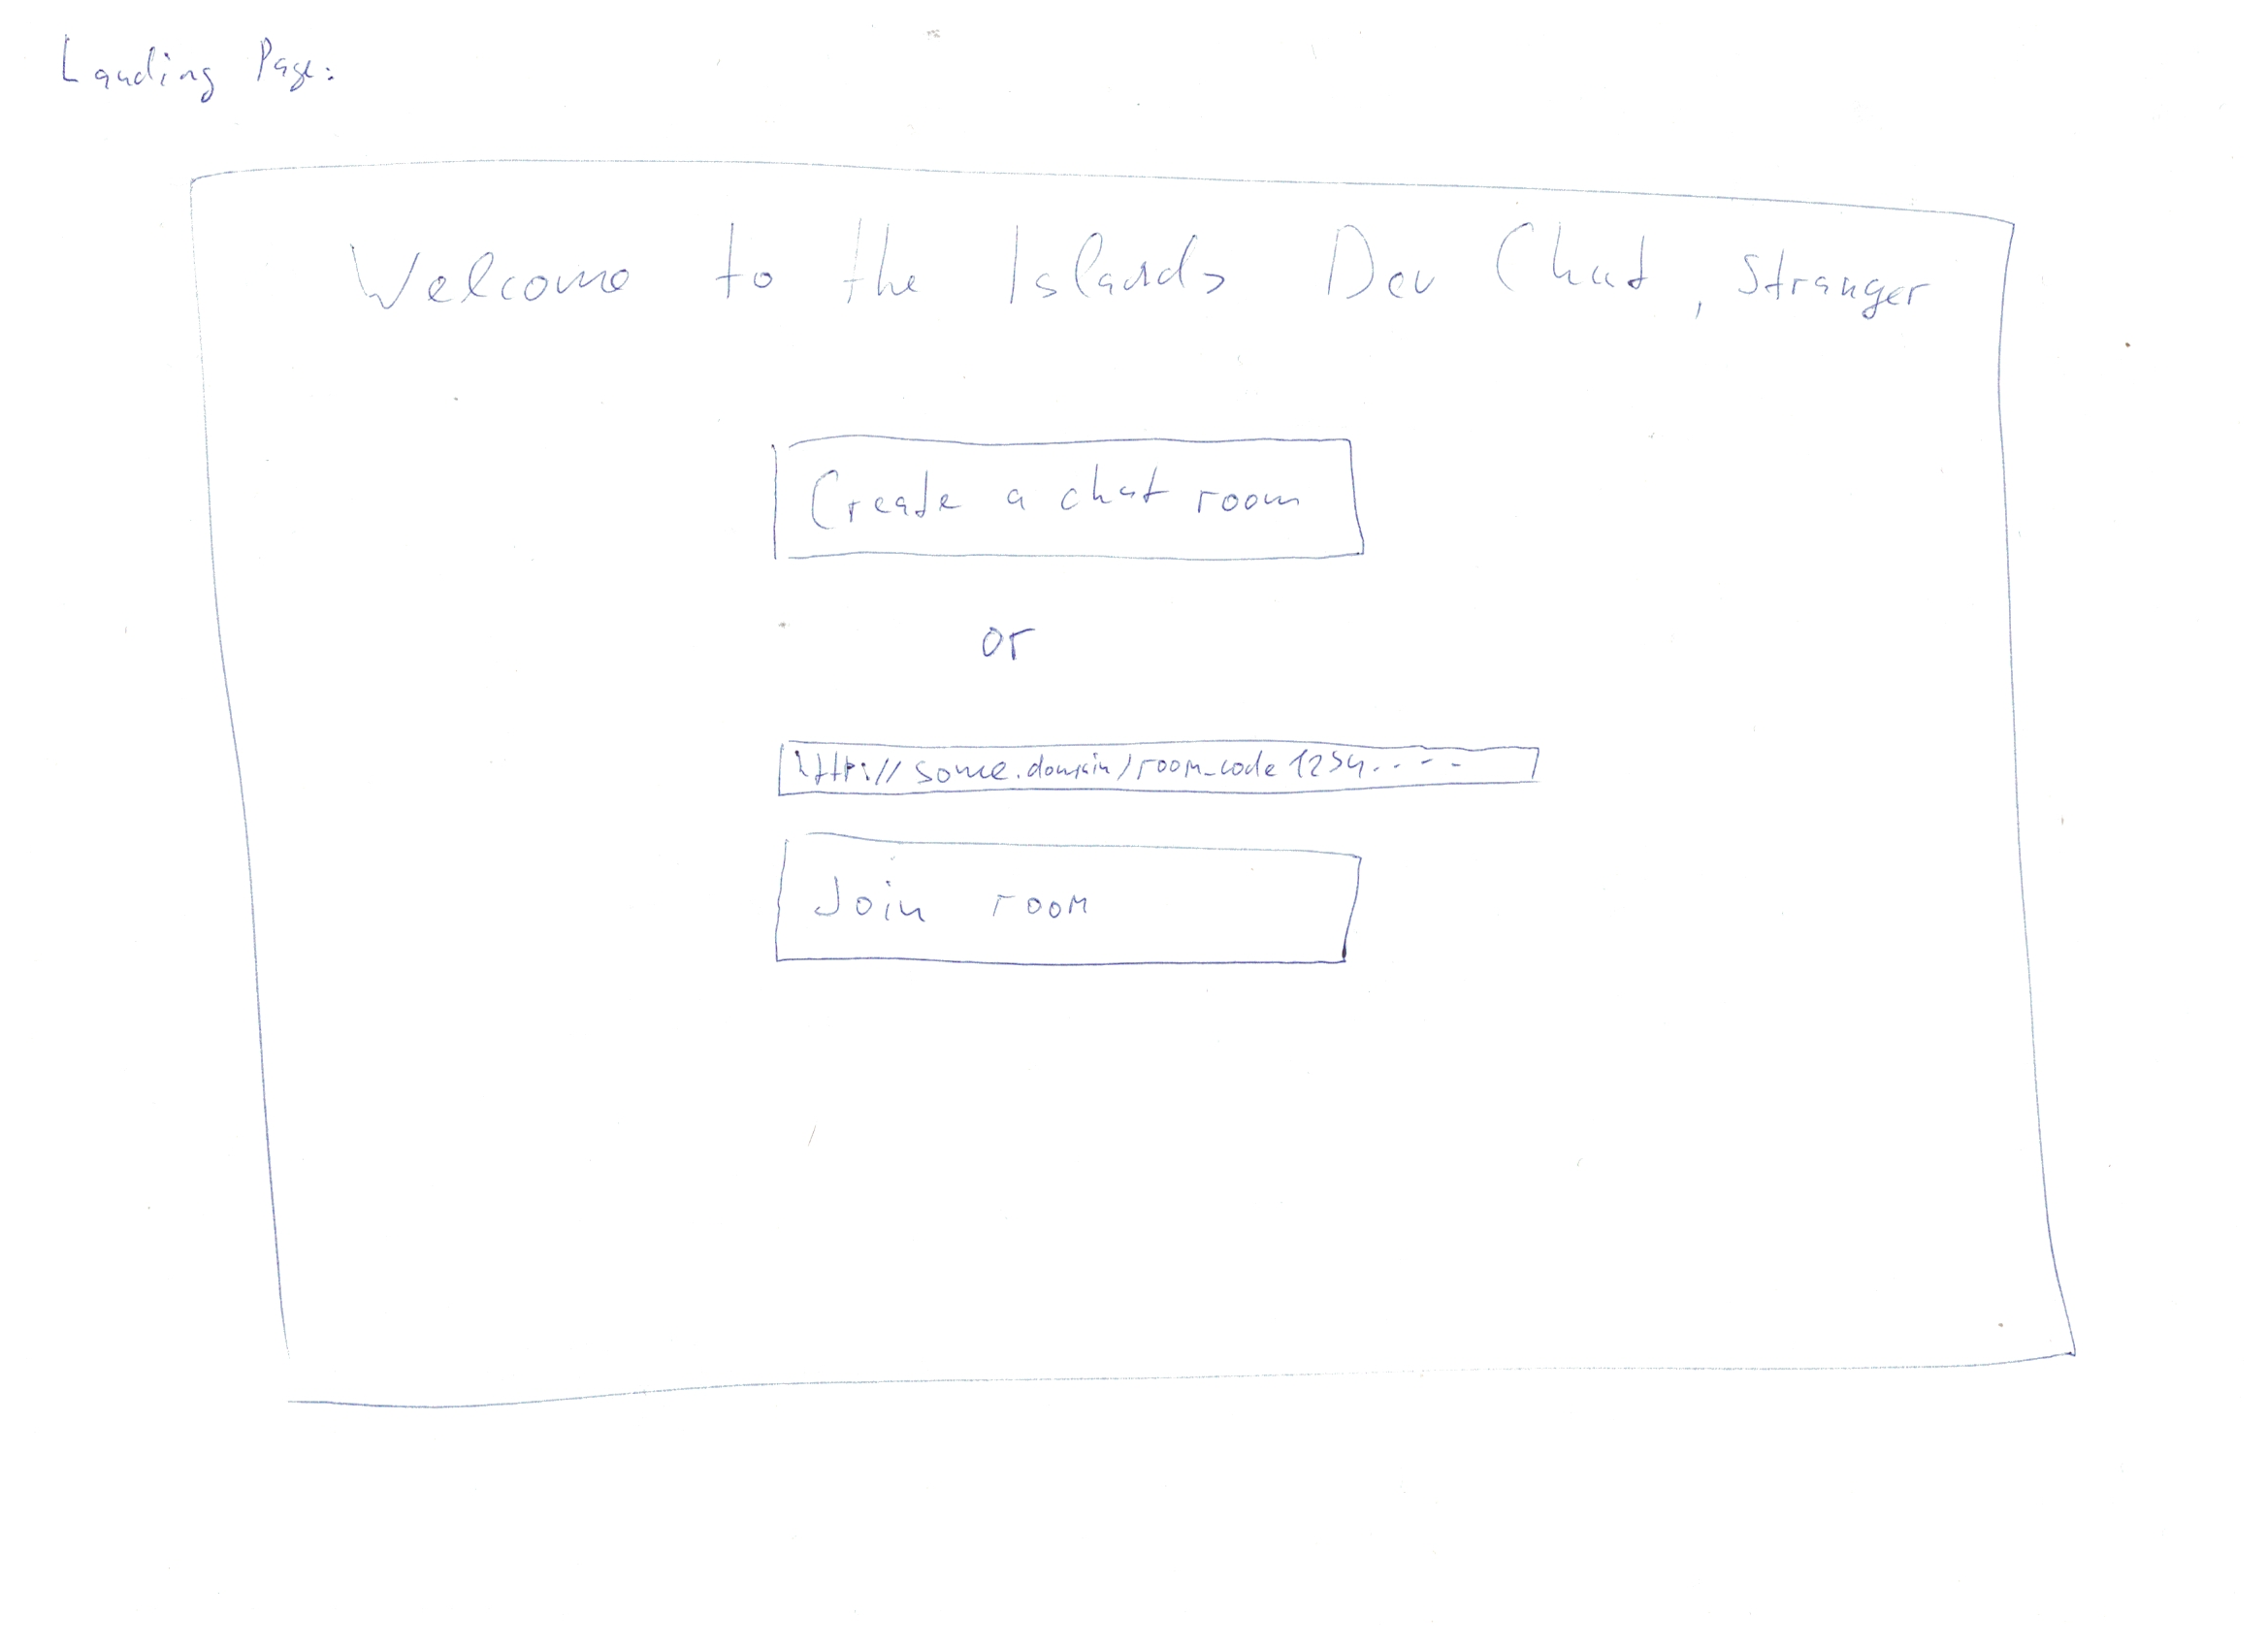 Landing Page:
Welcome to the Islands Dev Chat, Stranger
Create a chat room
or
http://some.domain/room_code1234.----
Join room